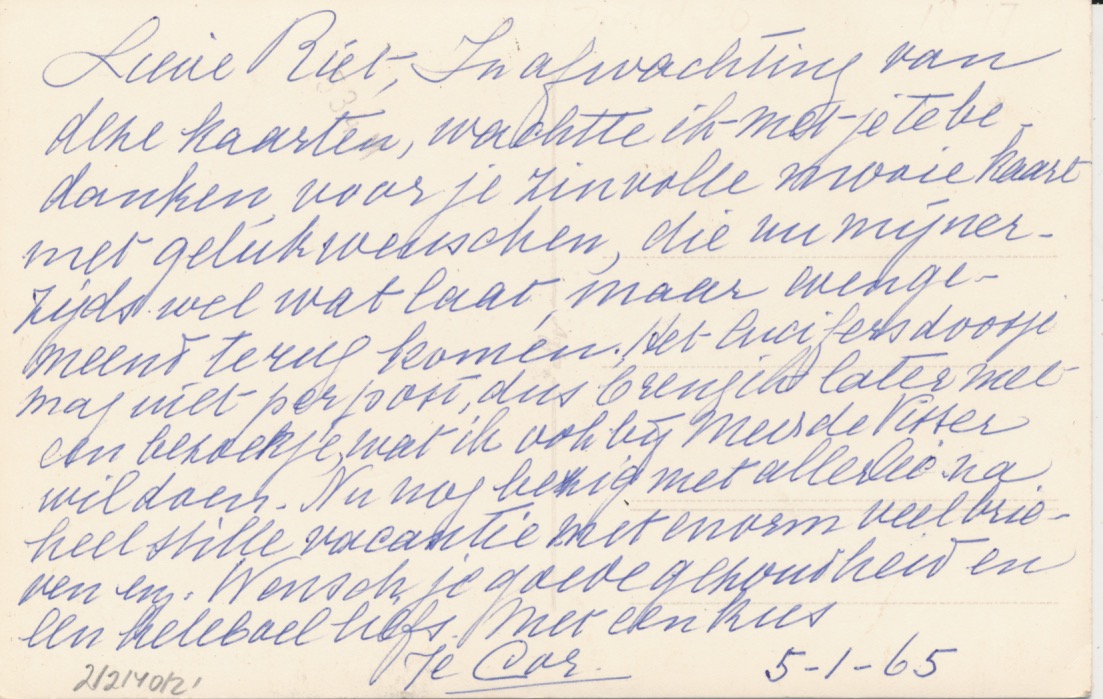 Lieve Riet, In afwachting van
deze kaarten, wachtte ik met je te be-
danken voor je zinvolle mooie kaart
met gelukwenschen, die nu mijner-
zijds wel wat laat, maar evenge-
meend terug komen. Het lucifersdoosje
mag niet per post, dus breng ik later met
een bezoekje, wat ik ook bij Mevr de Visser
wil doen. Nu nog bezig met allerlei na
heel stille vacantie met enorm veel brie-
ven enz. Wensch je goede gezondheid en
een heleboel liefs. Met een kus
Je Cor.
5-1-65